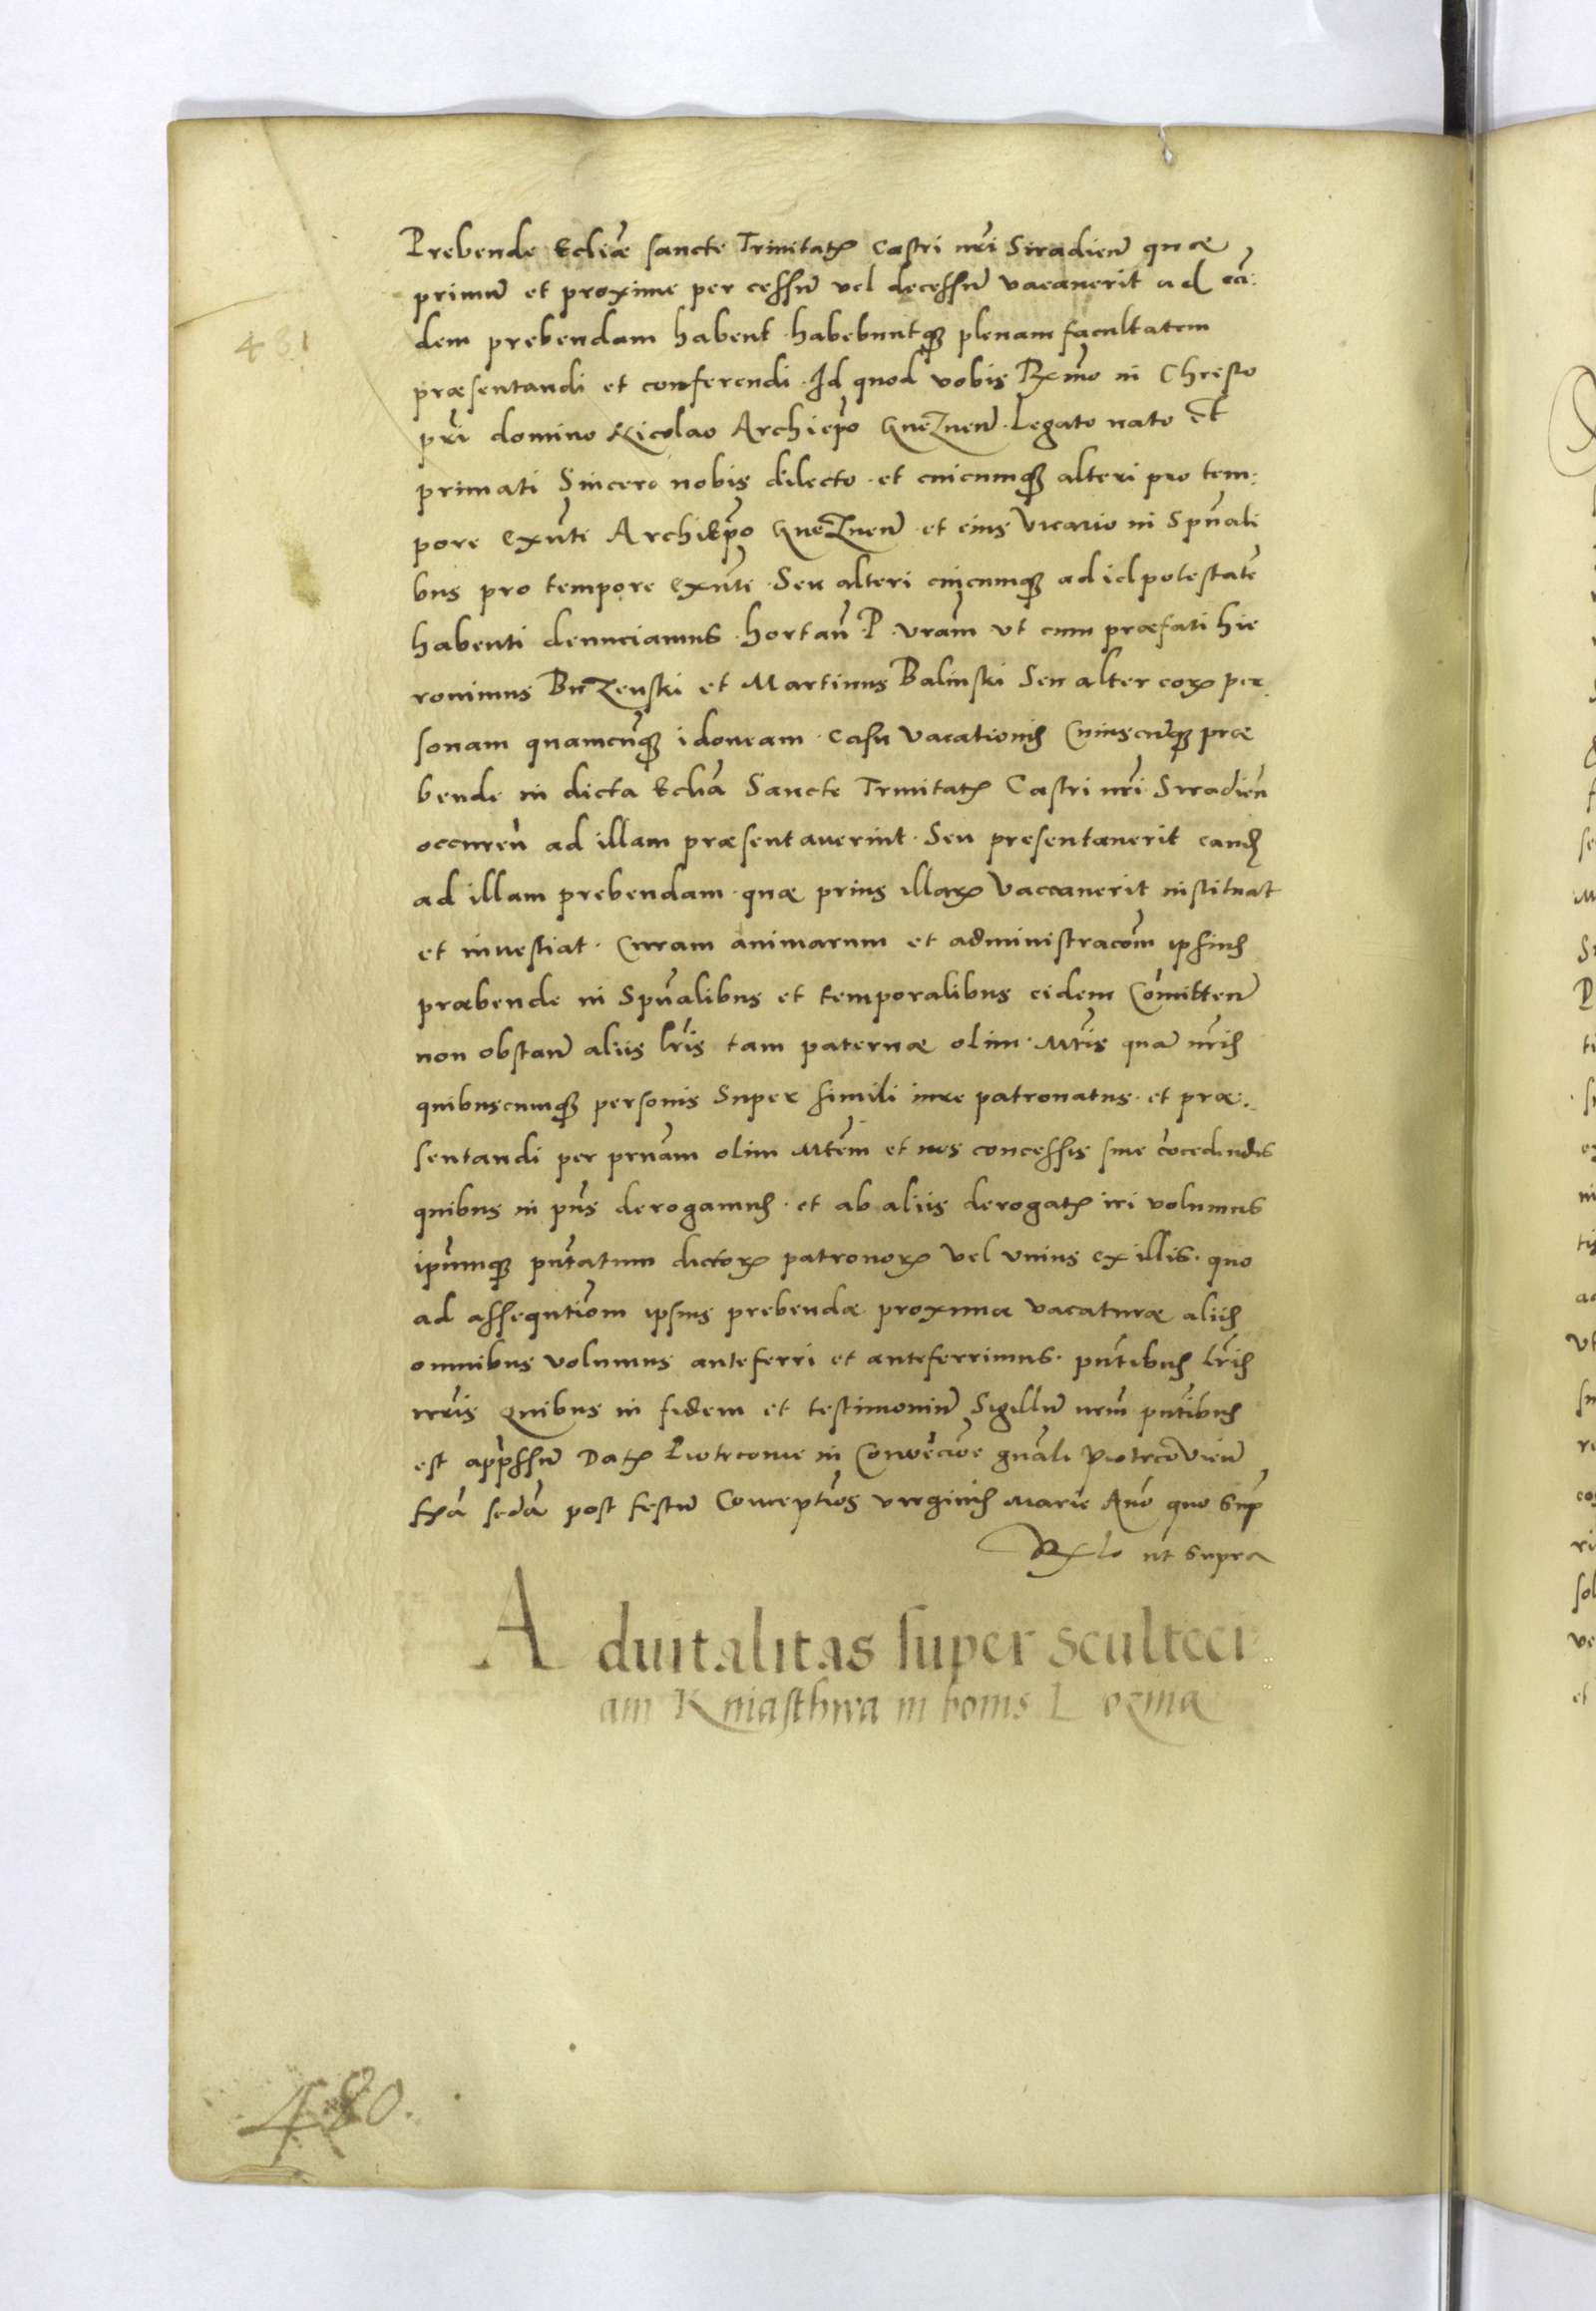 Prebende Ecliæ sancte Trinitatꝭ castri nr̃i Siradien̄ quæ
primū et proxime per cessū vel decessū vacauerit ad eā:
dem prebendam habent habebuntqꝫ plenam facultatem
præsentandi et conferendi. Id quod vobis Rx̃mo in Christo
pr̃i domino Nicolao Archiep̃o Gneznen̄. Legato nato et
primati Sincero nobis dilecto. et cuicumqꝫ alteri pro tem:
pore exñti Archiep̃o Gneznen̄ et eius vicario in Sp̃uali
bus pro tempore exñti. Seu alteri cuicumqꝫ ad id potestatē
habenti denuciamus. hortan̄. P. vram̄ vt cum præfati hie
ronimus Buzenski et Martinus Balinski Seu alter eorꝫ per
sonam quamcūqꝫ idoneam. casu vacationis Cuiuscūqꝫ præ
bende in dicta Eclīa Sancte Trinitatꝭ Castri nr̃i Siradien̄
occuren̄ ad illam præsentauerint. Seu presentauerit eandē
ad illam prebendam. quæ prius illarꝫ vaccauerit instituat
et inuestiat. Curam animarum et administracom̄ ipsius
præbende in Spũalibus et temporalibus eidem Comitten̄
non obstan̄ aliis lr̃is tam paternæ olim. Mtis̃ quā nr̃is
quibuscumqꝫ personis Super simili iure patronatus. et præ:
sentandi per prñam olim Mtem̃ et nos concessis siue cōcedendis
quibus in pñs derogamus. et ab aliis derogatꝭ iri volumus
ip̃umqꝫ pñtatum dictorꝫ patronorꝫ vel vnius ex illis. quo
ad assequtiom̄ ipsius prebendæ proxima vacaturæ aliis
omnibus volumus anteferri et anteferrimus. pñtibus lr̃is
nr̃is Quibus in fidem et testimoniū Sigillū nrm̃ pñtibus
est app̃ssū Datꝭ Piotrcouie in Conuēcioe gñali Piotrcouien̄
fẽa scd̃a post festū Conceptios̃ virginis Marie Ano quo Sup̃
Rx̃lo ut supra
Aduitalitas super Sculteci
am Kniasthwa in bonis Lozina
481
480.